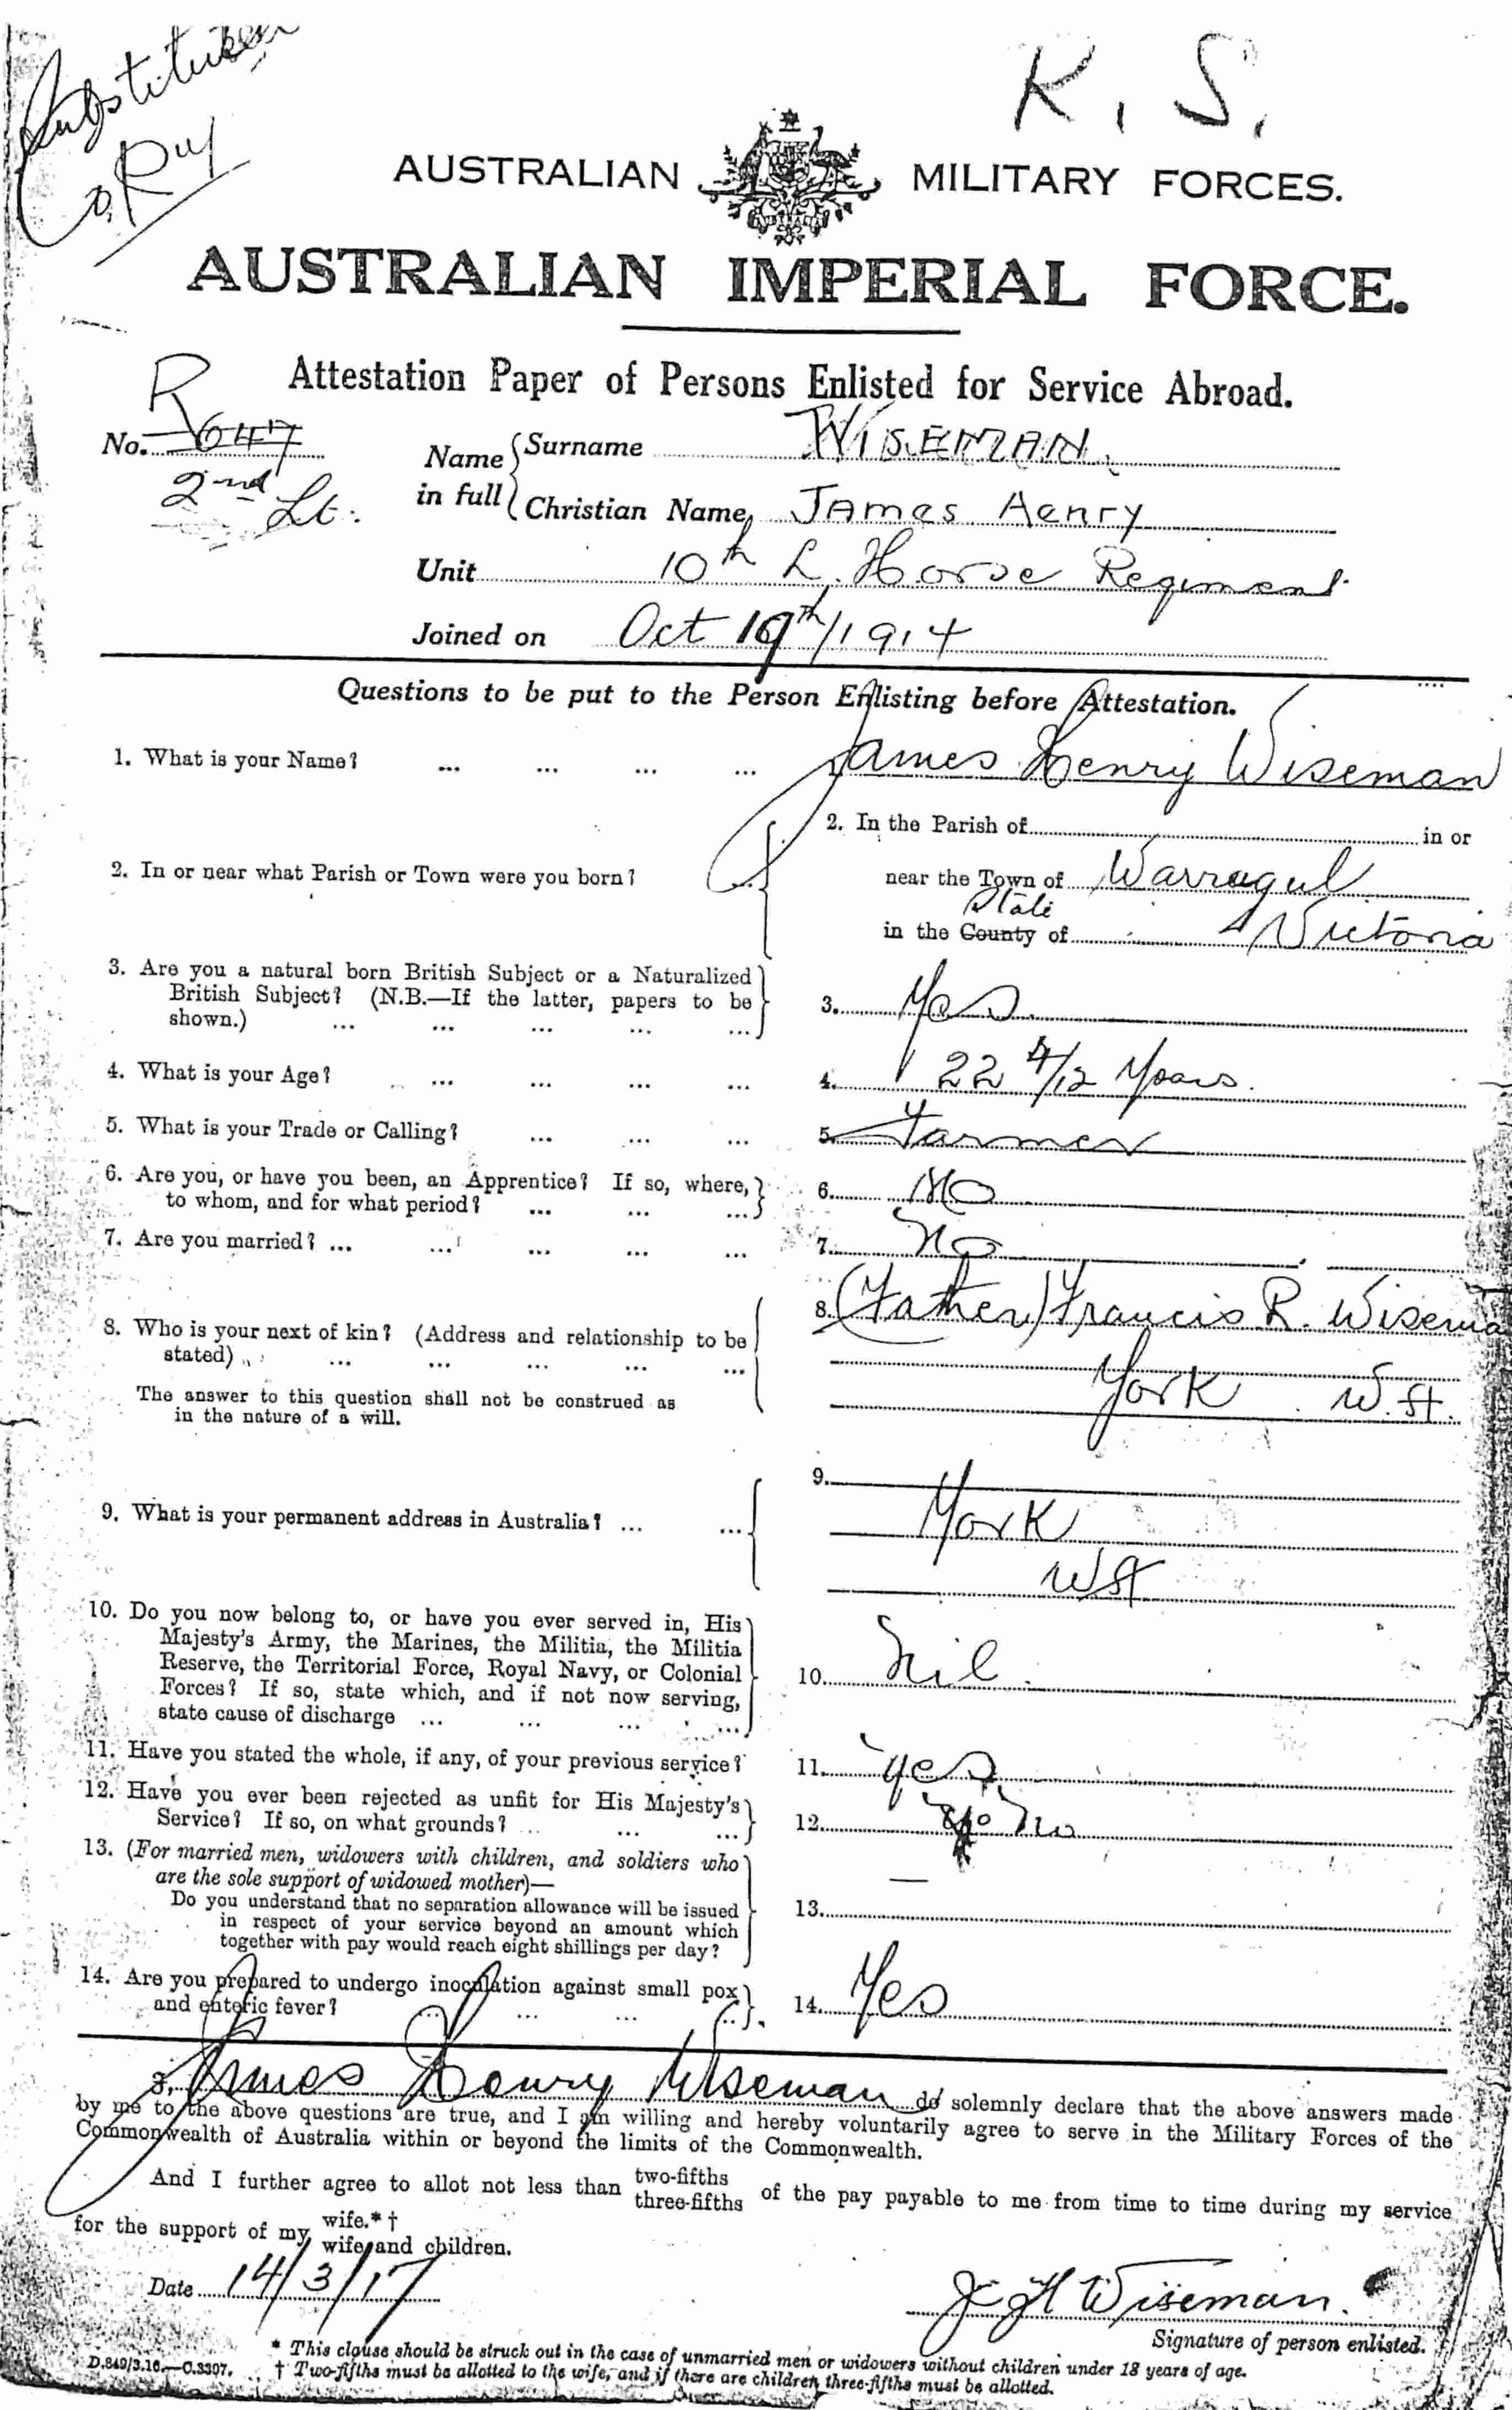 Substitution
K. S.
AUSTRALIAN MILITARY FORCES.
AUSTRALIAN IMPERIAL FORCE.
Attestation Paper of Persons Enlisted for Service Abroad.
R
No. 647
2nd Lt.
Name in full { Surname WISEMAN
Christian Name James Henry
Unit 10th L. Horse Regiment
Joined on Oct 19th/1914
Questions to be put to the Person Enlisting before Attestation.
1. What is your Name? ... ... ... ... James Henry Wiseman
2. In or near what Parish or Town were you born? ... 2. In the Parish of in or
near the Town of Warragul
State
in the County of Victoria
3. Are you a natural born British Subject or a Naturalized
British Subject? (N.B.—If the latter, papers to be
shown.) ... ... ... ... ... 3. Yes
4. What is your Age? ... ... ... ... 4. 22 4/12 Years
5. What is your Trade or Calling? ... ... ... 5. Farmer
6. Are you, or have you been, an Apprentice? If so, where,
to whom, and for what period? ... ... ... 6. No
7. Are you married? ... ... ... ... ... 7. No
8. Who is your next of kin? (Address and relationship to be
stated) ... ... ... ... ... 8. (Father) Francis R. Wisema
York W.A.
The answer to this question shall not be construed as
in the nature of a will.
9. What is your permanent address in Australia? ... ... 9.
York
WA
10. Do you now belong to, or have you ever served in, His
Majesty's Army, the Marines, the Militia, the Militia
Reserve, the Territorial Force, Royal Navy, or Colonial
Forces? If so, state which, and if not now serving,
state cause of discharge ... ... ... ... 10. Nil.
11. Have you stated the whole, if any, of your previous service? 11. Yes
12. Have you ever been rejected as unfit for His Majesty's
Service? If so, on what grounds? ... ... ... 12. No
13. (For married men, widowers with children, and soldiers who
are the sole support of widowed mother)—
Do you understand that no separation allowance will be issued
in respect of your service beyond an amount which
together with pay would reach eight shillings per day? 13. —
14. Are you prepared to undergo inoculation against small pox
and enteric fever? ... ... ... ... 14. Yes
I, James Henry Wiseman do solemnly declare that the above answers made
by me to the above questions are true, and I am willing and hereby voluntarily agree to serve in the Military Forces of the
Commonwealth of Australia within or beyond the limits of the Commonwealth.
And I further agree to allot not less than two-fifths three-fifths of the pay payable to me from time to time during my service
for the support of my wife.*† wife and children.
Date 14/3/17
J H Wiseman.
Signature of person enlisted.
* This clause should be struck out in the case of unmarried men or widowers without children under 18 years of age.
D.849/3.16.—C.3397. † Two-fifths must be allotted to the wife, and if there are children three-fifths must be allotted.